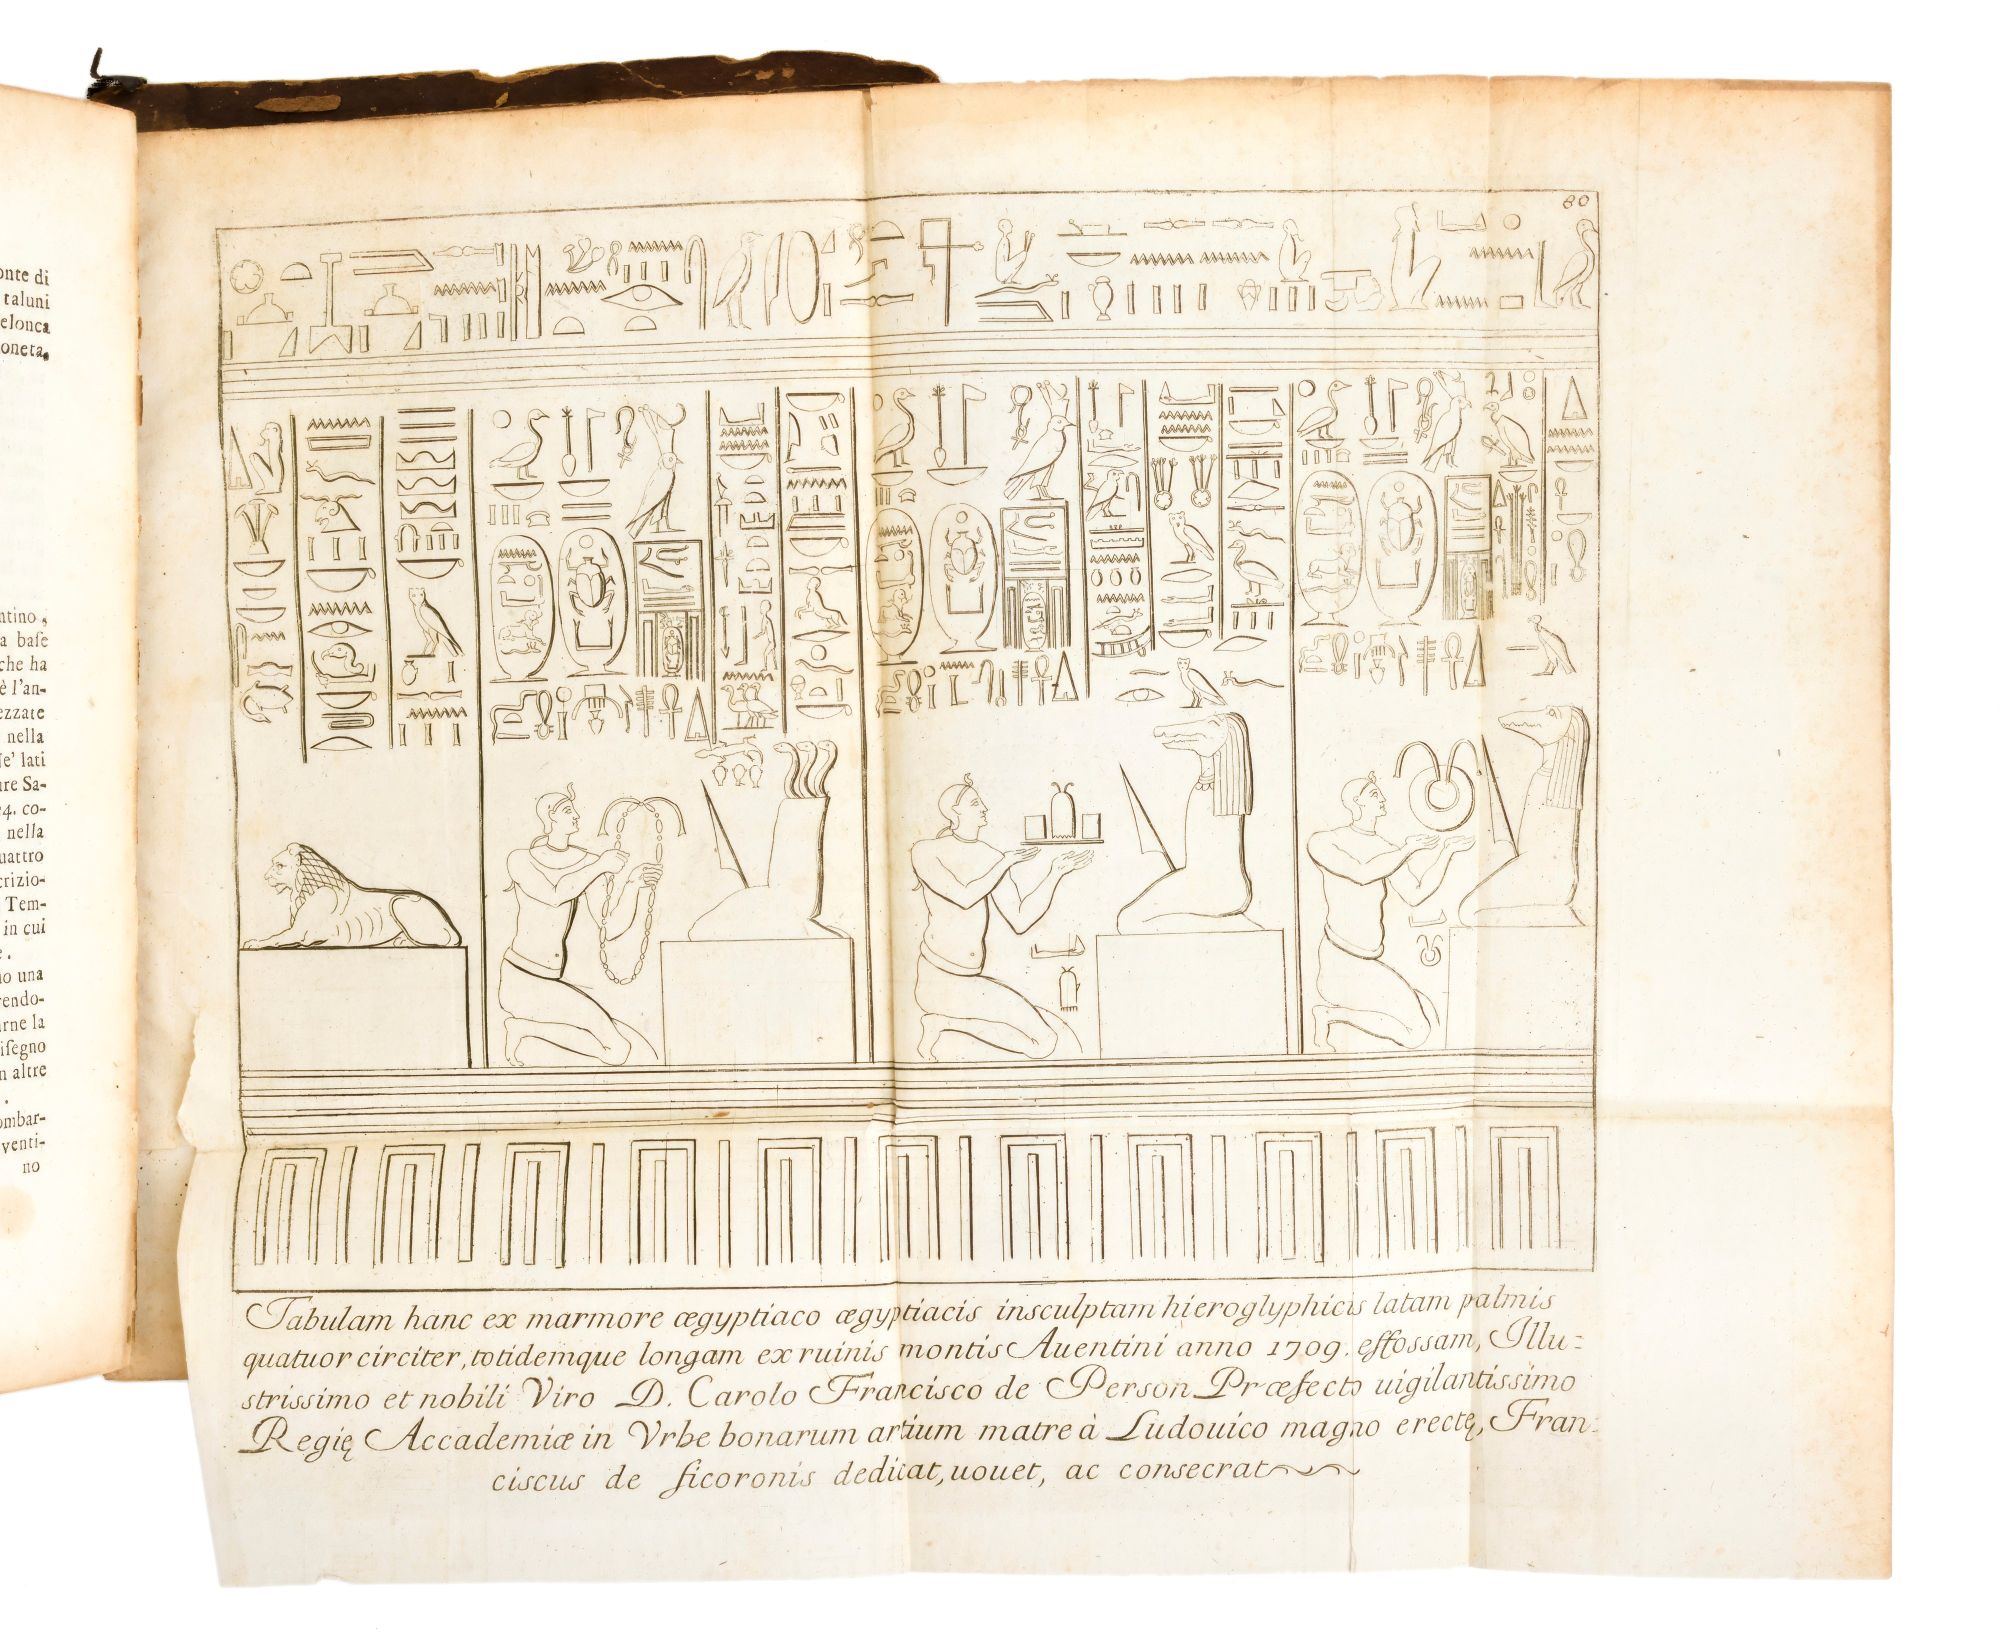 onte di
taluni
elonca
oneta.
ntino,
a baſe
che ha
è l'an-
ezzate
nella
ſe' lati
ure Sa-
4. co-
nella
uattro
crizio-
Tem-
in cui
e.
no una
rendo-
arne la
iſegno
n altre
.
ombar-
venti-
no
80
Tabulam hanc ex marmore ægyptiaco ægyptiacis insculptam hieroglyphicis latam palmis
quatuor circiter, totidemque longam ex ruinis montis Auentini anno 1709. effossam, Illu=
strissimo et nobili Viro D. Carolo Francisco de Person Præfecto uigilantissimo
Regię Accademiæ in Vrbe bonarum artium matre à Ludouico magno erectę, Fran=
ciscus de ficoronis dedicat, uouet, ac consecrat